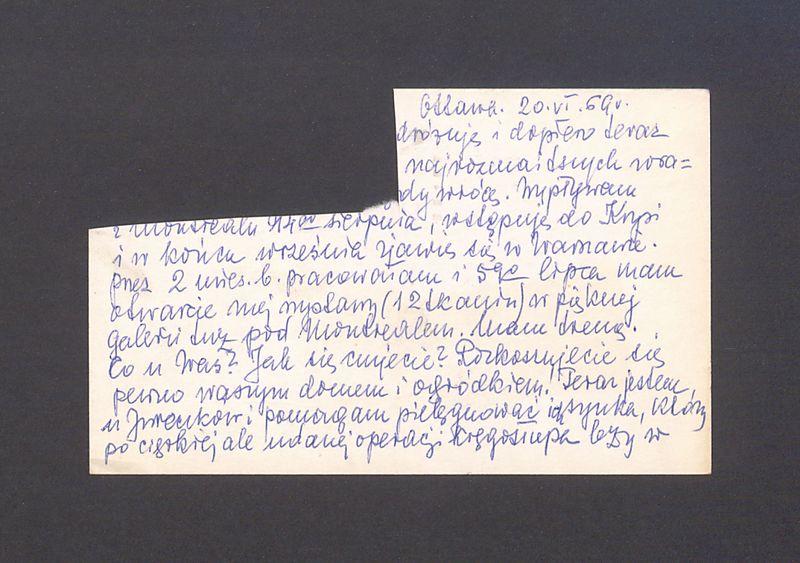 Ottawa. 20.VI.69r.
dróżuję i dopiero teraz
najrozmaitszych wra=
dy wrócę. Wypływam
z Montrealu 14go sierpnia, wstępuję do Krysi
i w końcu września zjawię się w Warszawie.
przez 2 mies. b. pracowałam i 5go lipca mam
otwarcie mej wystawy (12 tkanin) w pięknej
galerii tuż pod Montrealem. Mam tremę.
Co u Was? Jak się czujecie? Rozkoszujecie się
pewno własnym domem i ogródkiem. Teraz jestem
u i pomagam pielęgnować ich synka, który
po ciężkiej ale udanej operacji kręgosłupa leży w